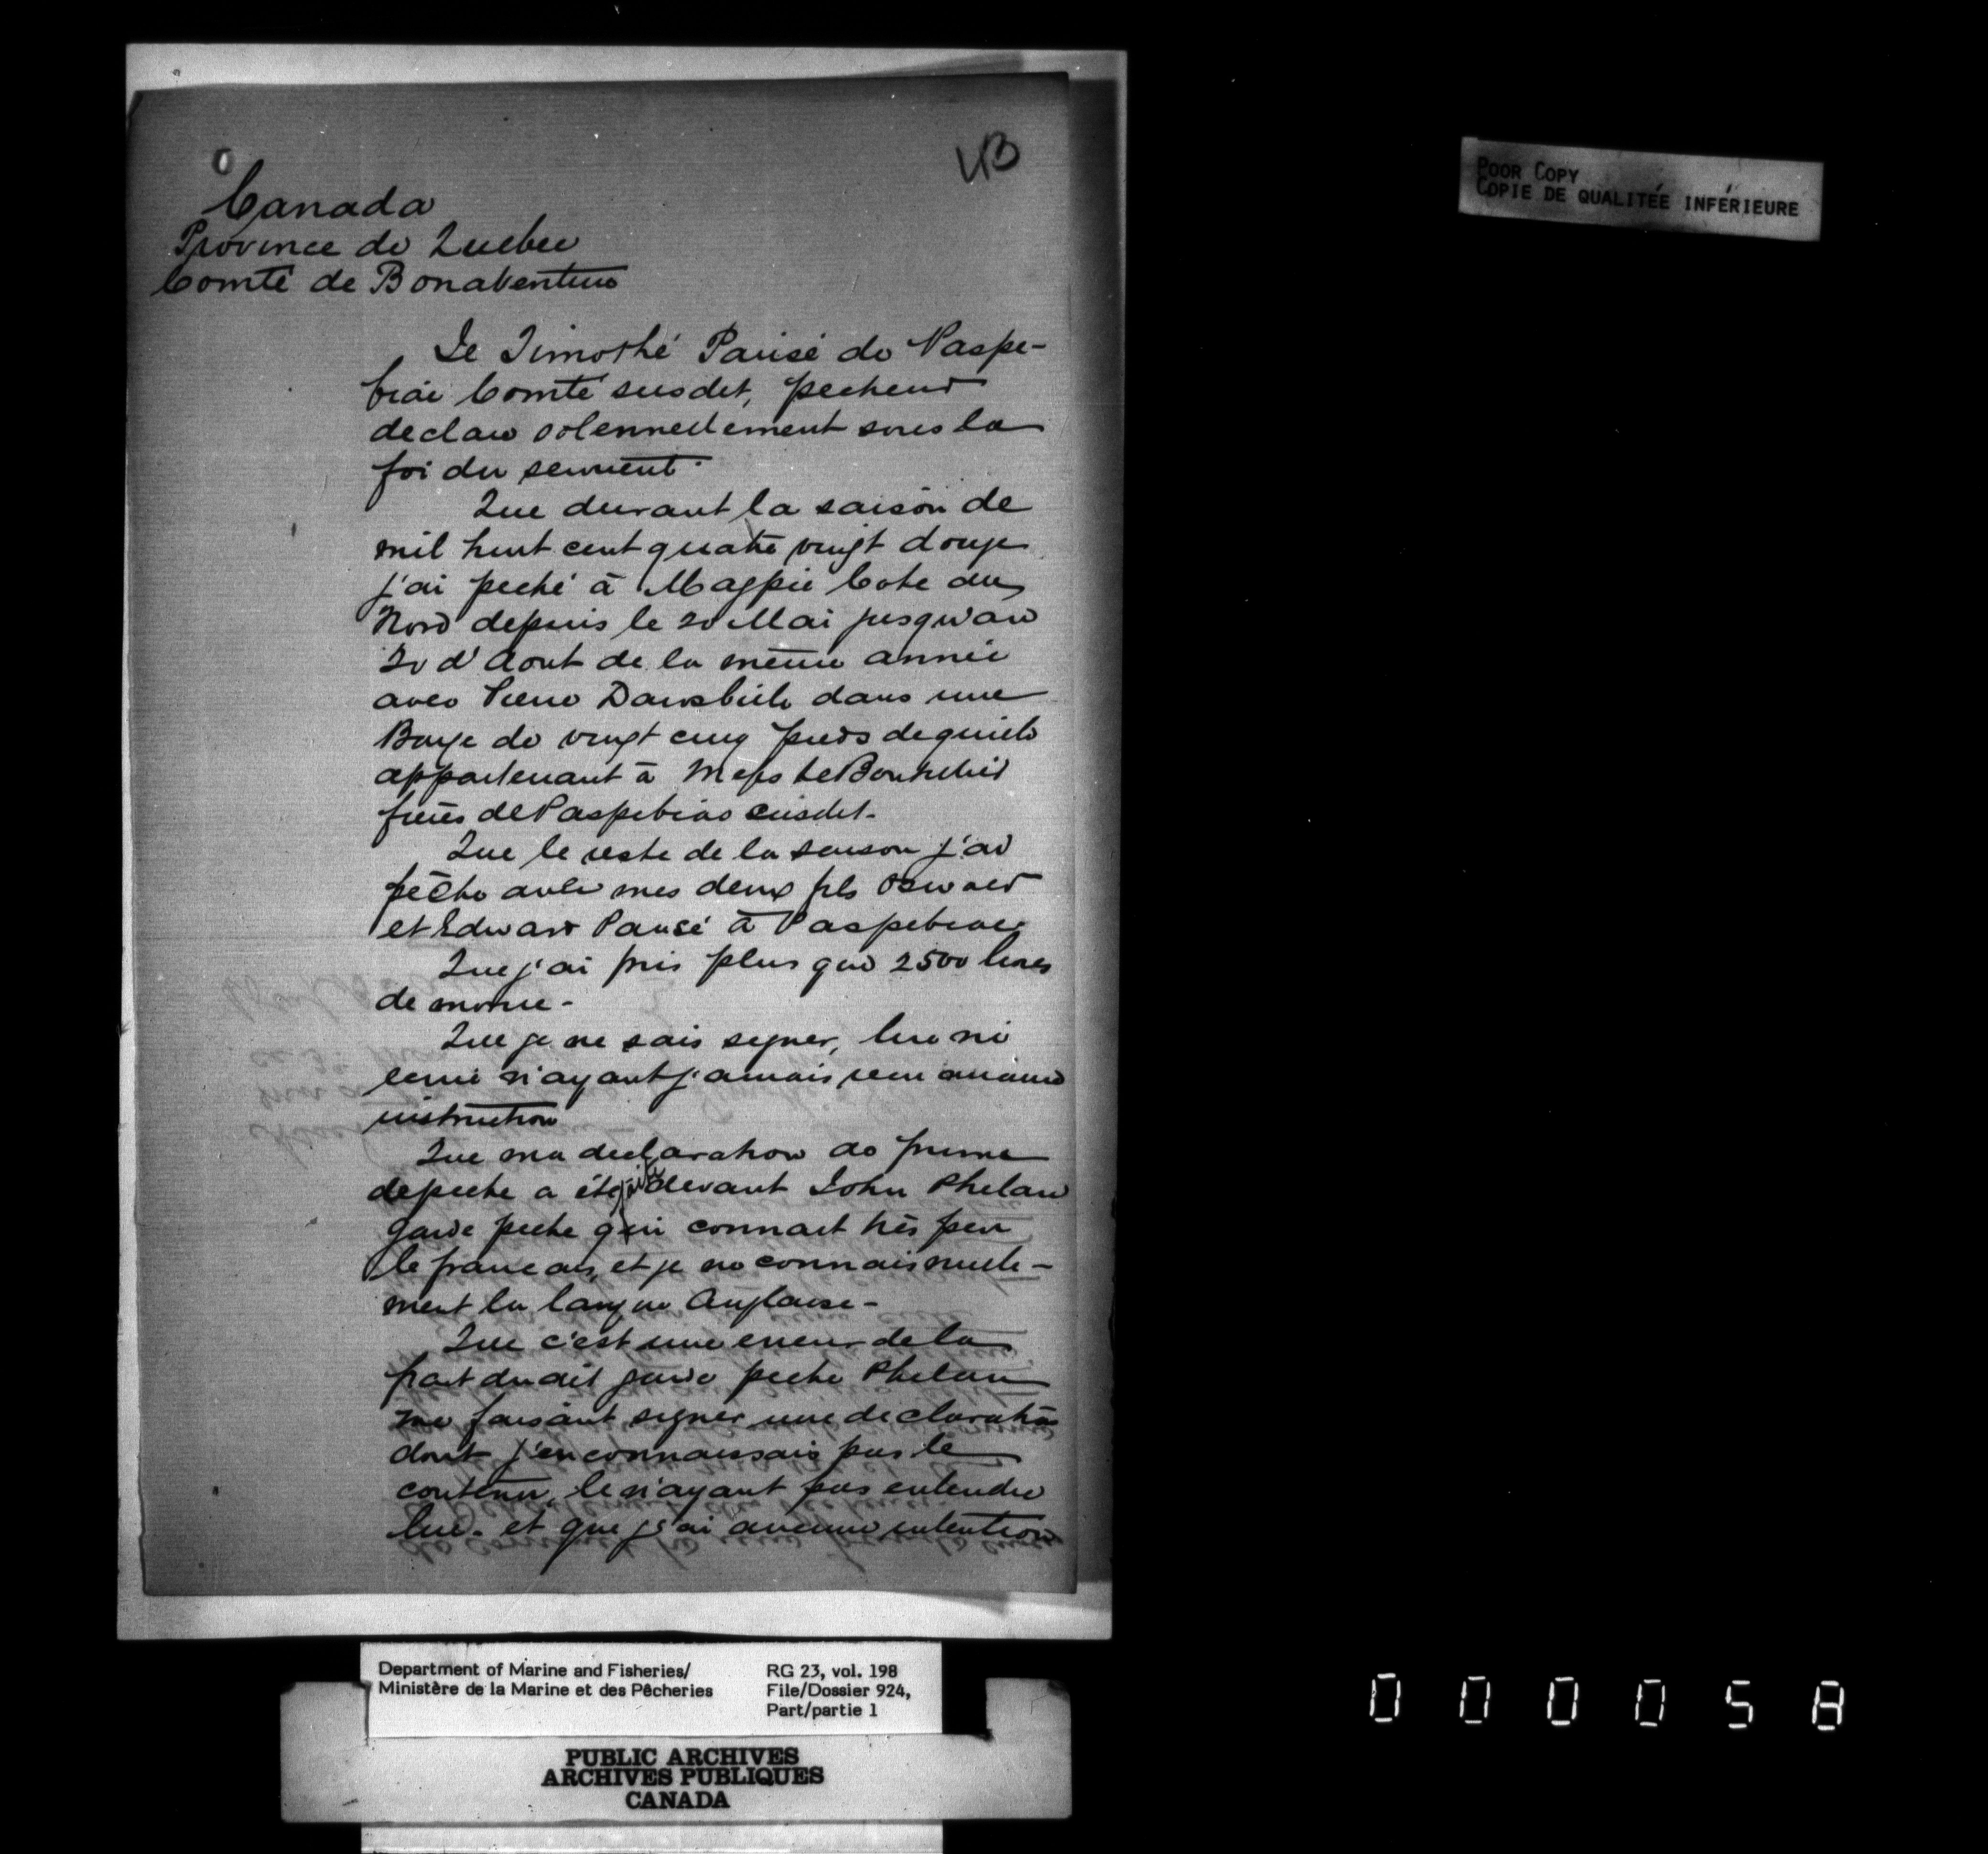 43
POOR COPY
COPIE DE QUALITÉE INFÉRIEURE
Canada
Province de Quebec
Comté de Bonaventure
Je Timothé Parisé de Paspe-
biac Comté susdit, pecheur
declare solennellement sous la
foi du serment.
Que durant la saison de
mil huit cent quatre vingt douze
j'ai peché à Magpie Cote du
Nord depuis le 20 Mai jusqu'au
20 d'Aout de la même année
avec Pierre dans une
Barge de vingt cinq pieds de quille
appartenant à Messrs LeBouthillier
frères de Paspebiac susdit-
Que le reste de la saison j'ai
pêché avec mes deux fils Oswald
et Edward Parisé à Paspebiac
Que j'ai pris plus que 2500 livres
de morue-
Que je ne sais signer, lire ni
ecrire n'ayant jamais reçu aucune
instruction
Que ma declaration de prime
de peche a été faite devant John Phelan
garde peche qui connait très peu
le francais, et je ne connais nulle-
ment la langue Anglaise-
Que c'est une erreur de la
part du dit garde peche Phelan
me faisant signer une declaration
dont j'en connaissais pas le
contenu, le n'ayant pas entendu
lire. et que j'ai aucune intention
Department of Marine and Fisheries/
Ministère de la Marine et des Pêcheries
RG 23, vol. 198
File/Dossier 924,
Part/partie 1
PUBLIC ARCHIVES
ARCHIVES PUBLIQUES
CANADA
000058